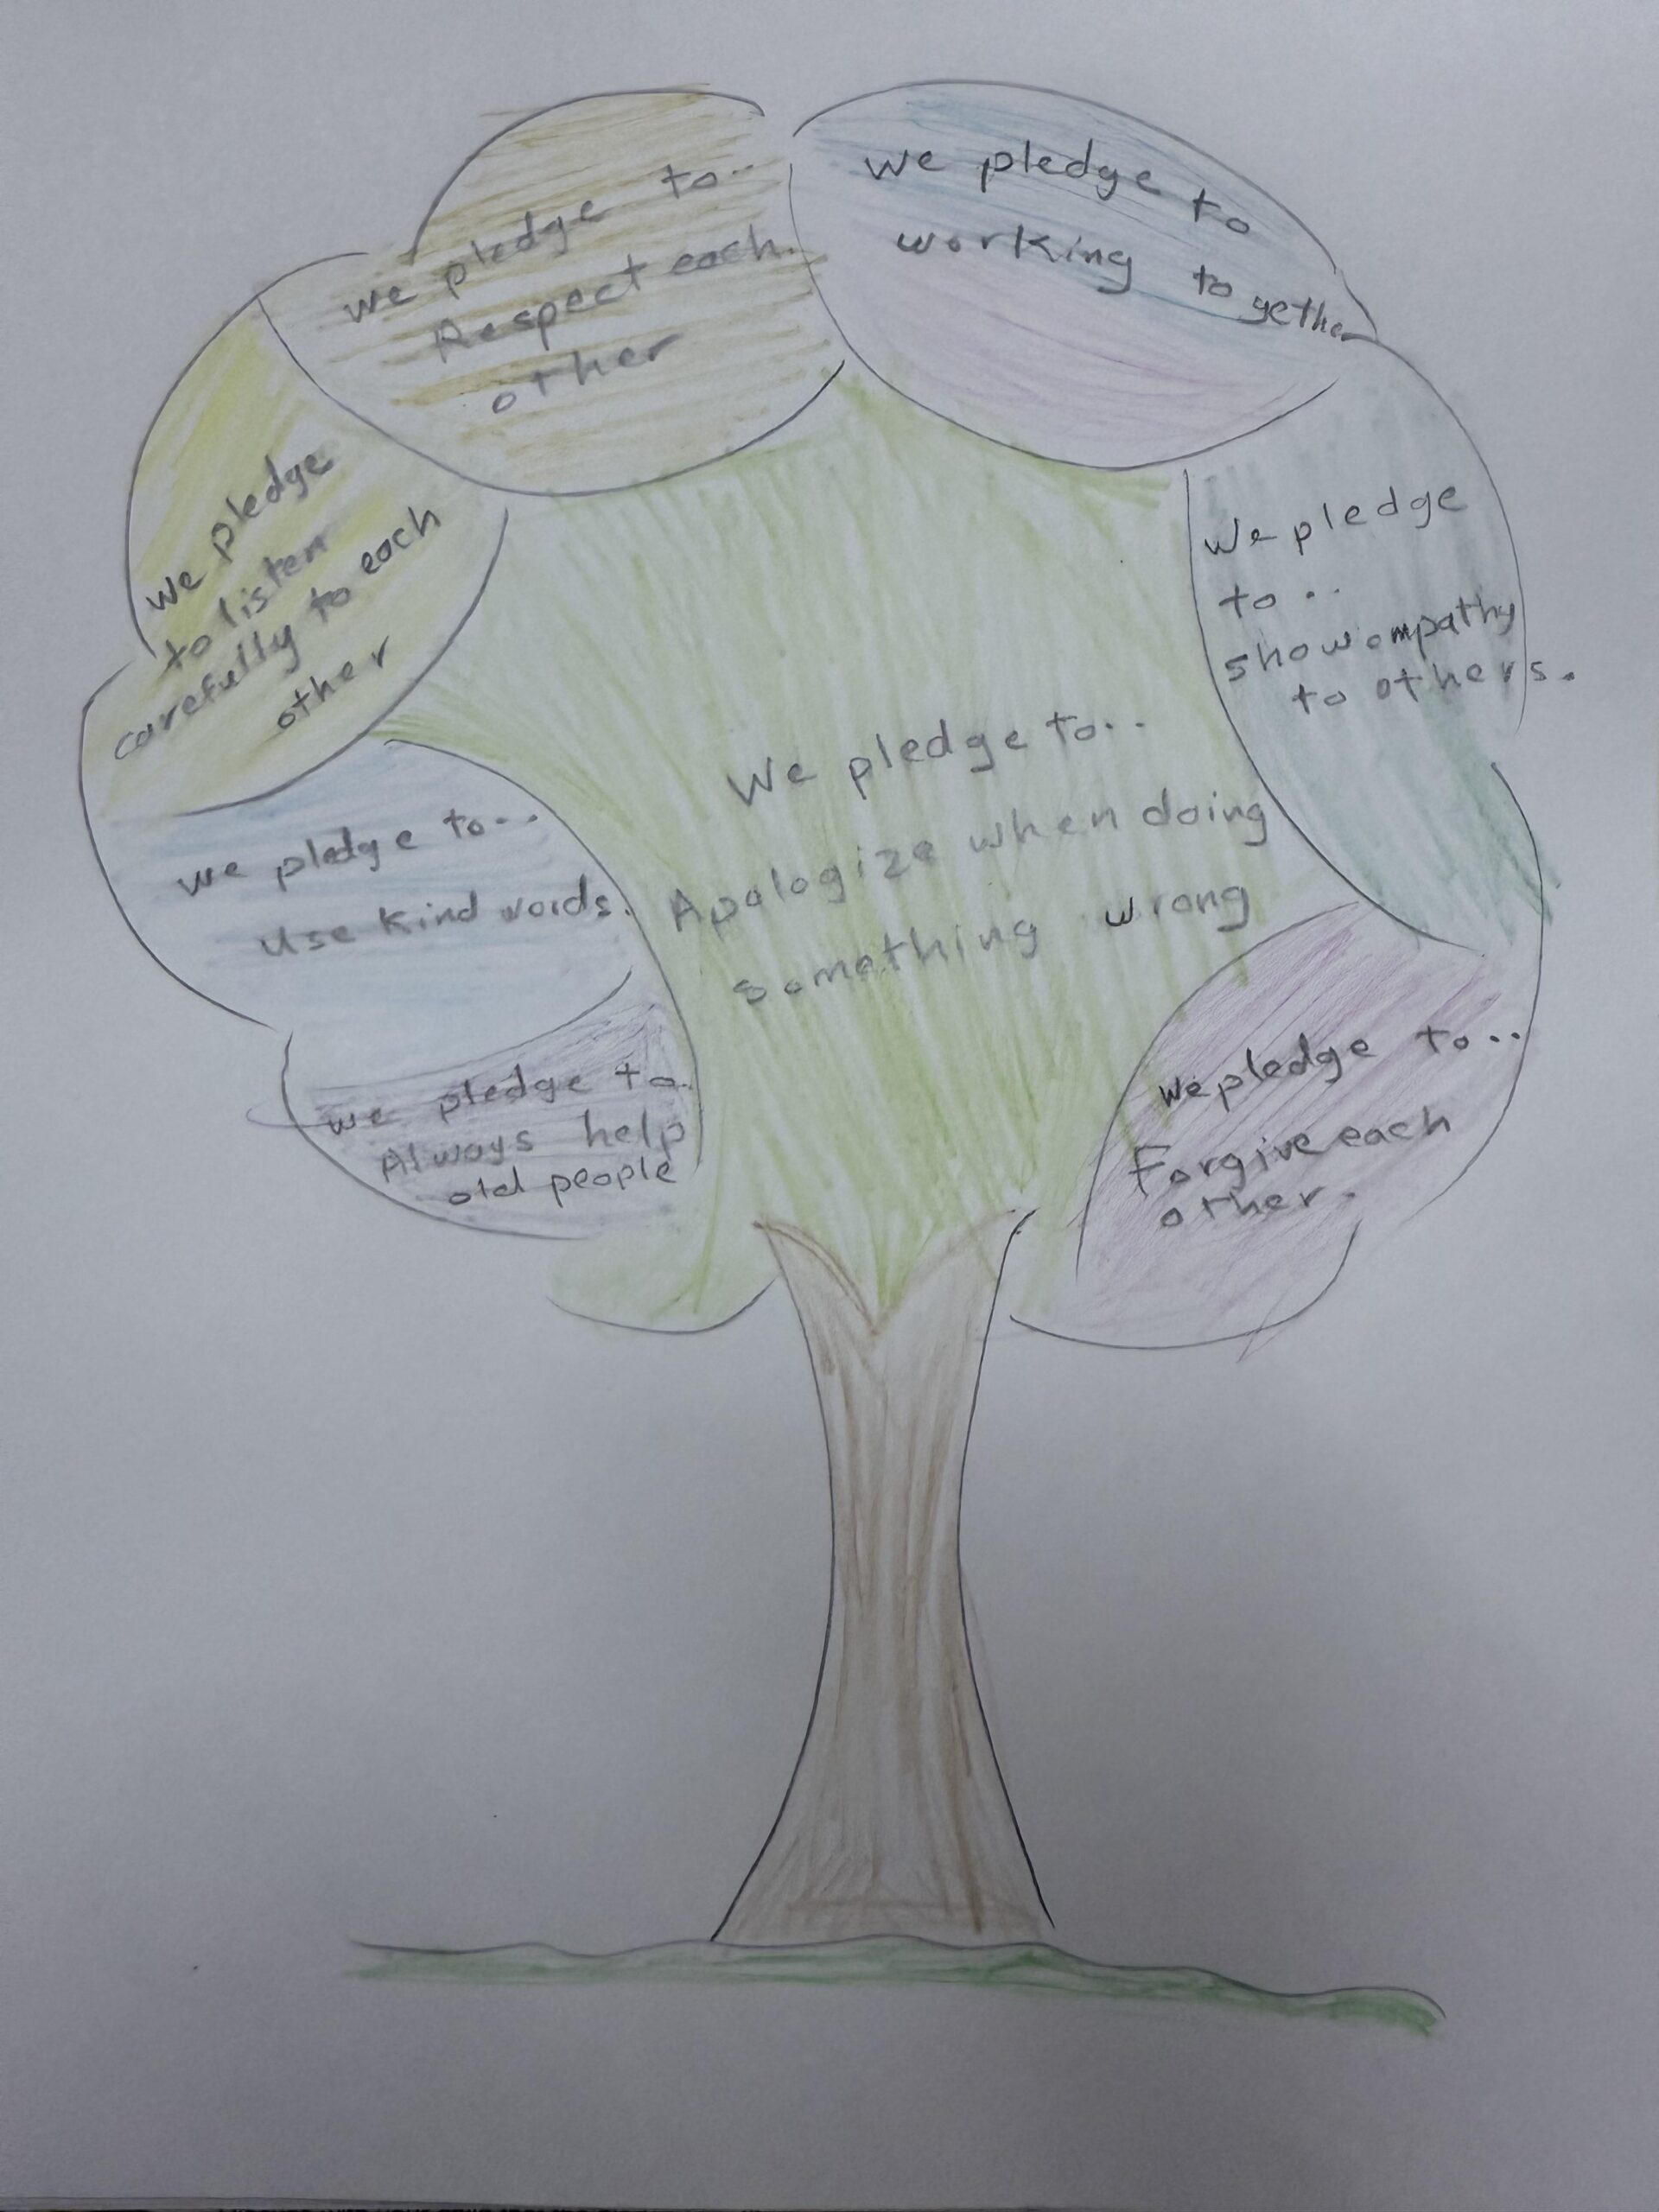 we pledge to..
Respect each
other
we pledge to
working together
we pledge
to listen
carefully to each
other
We pledge
to..
show empathy
to others.
We pledge to..
Apologize when doing
something wrong
we pledge to..
use kind words.
we pledge to..
Always help
old people
We pledge to..
Forgive each
other.